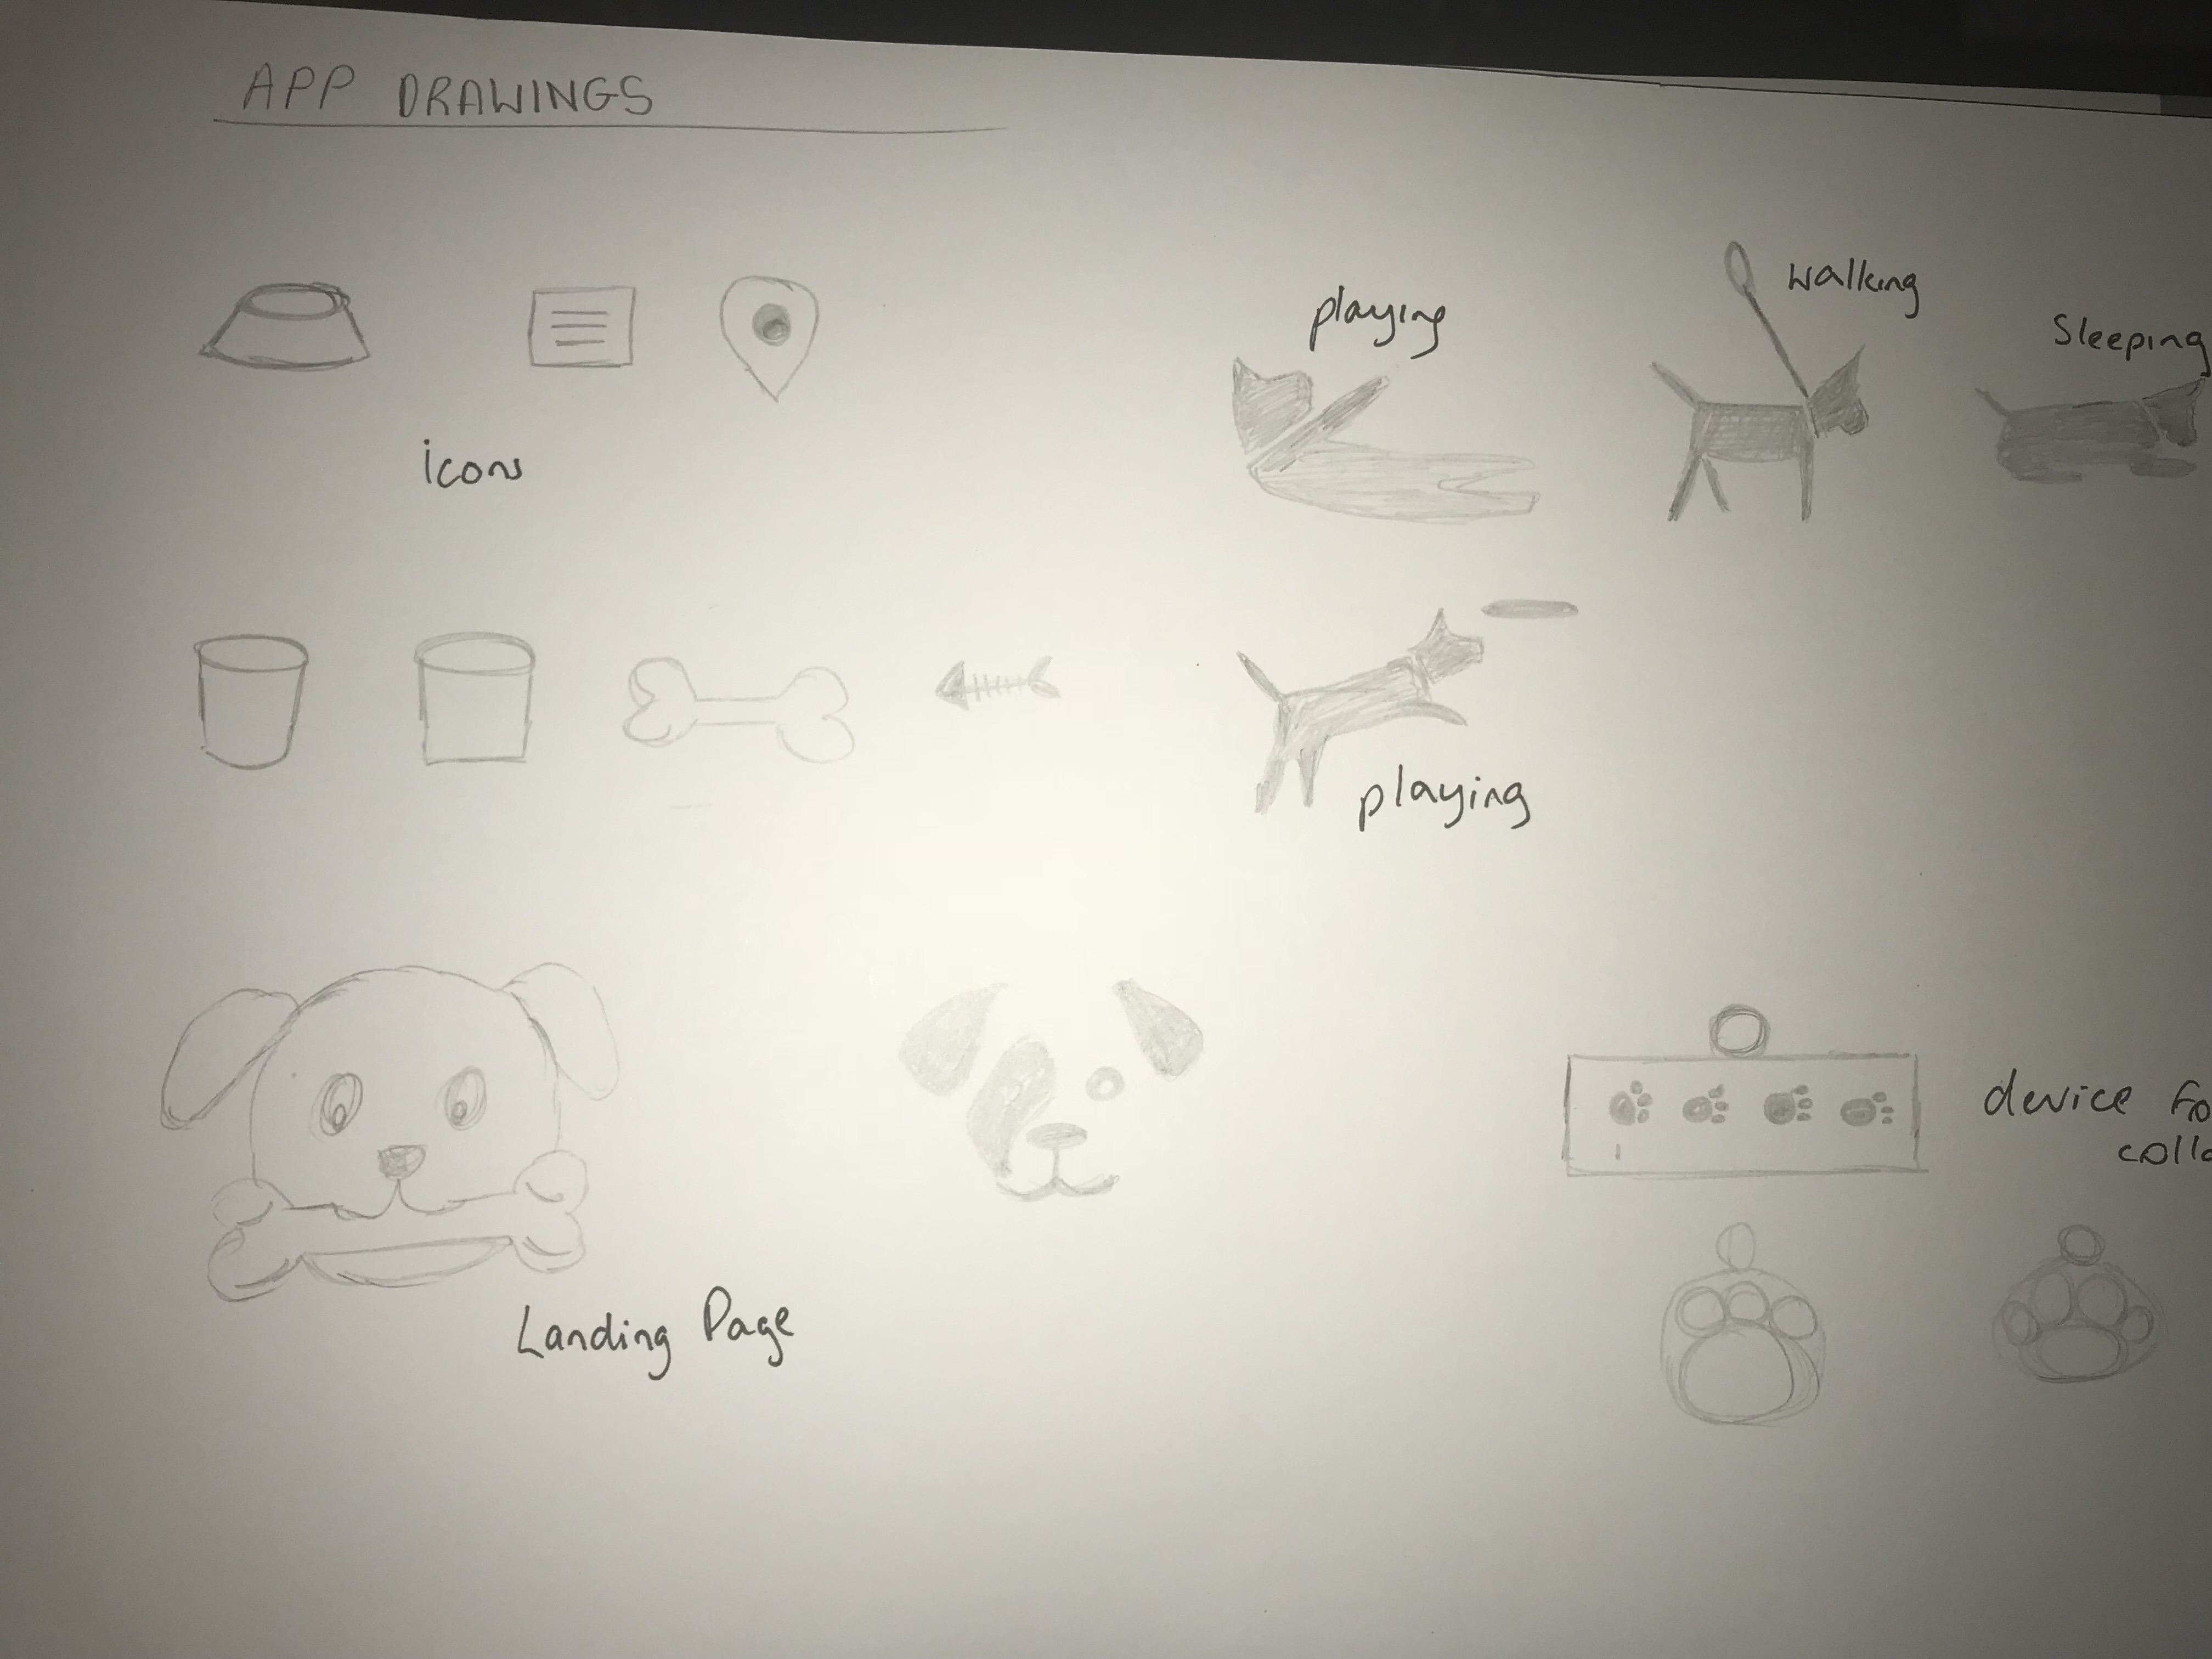 APP DRAWINGS
icons
playing
walking
Sleeping
playing
Landing Page
device